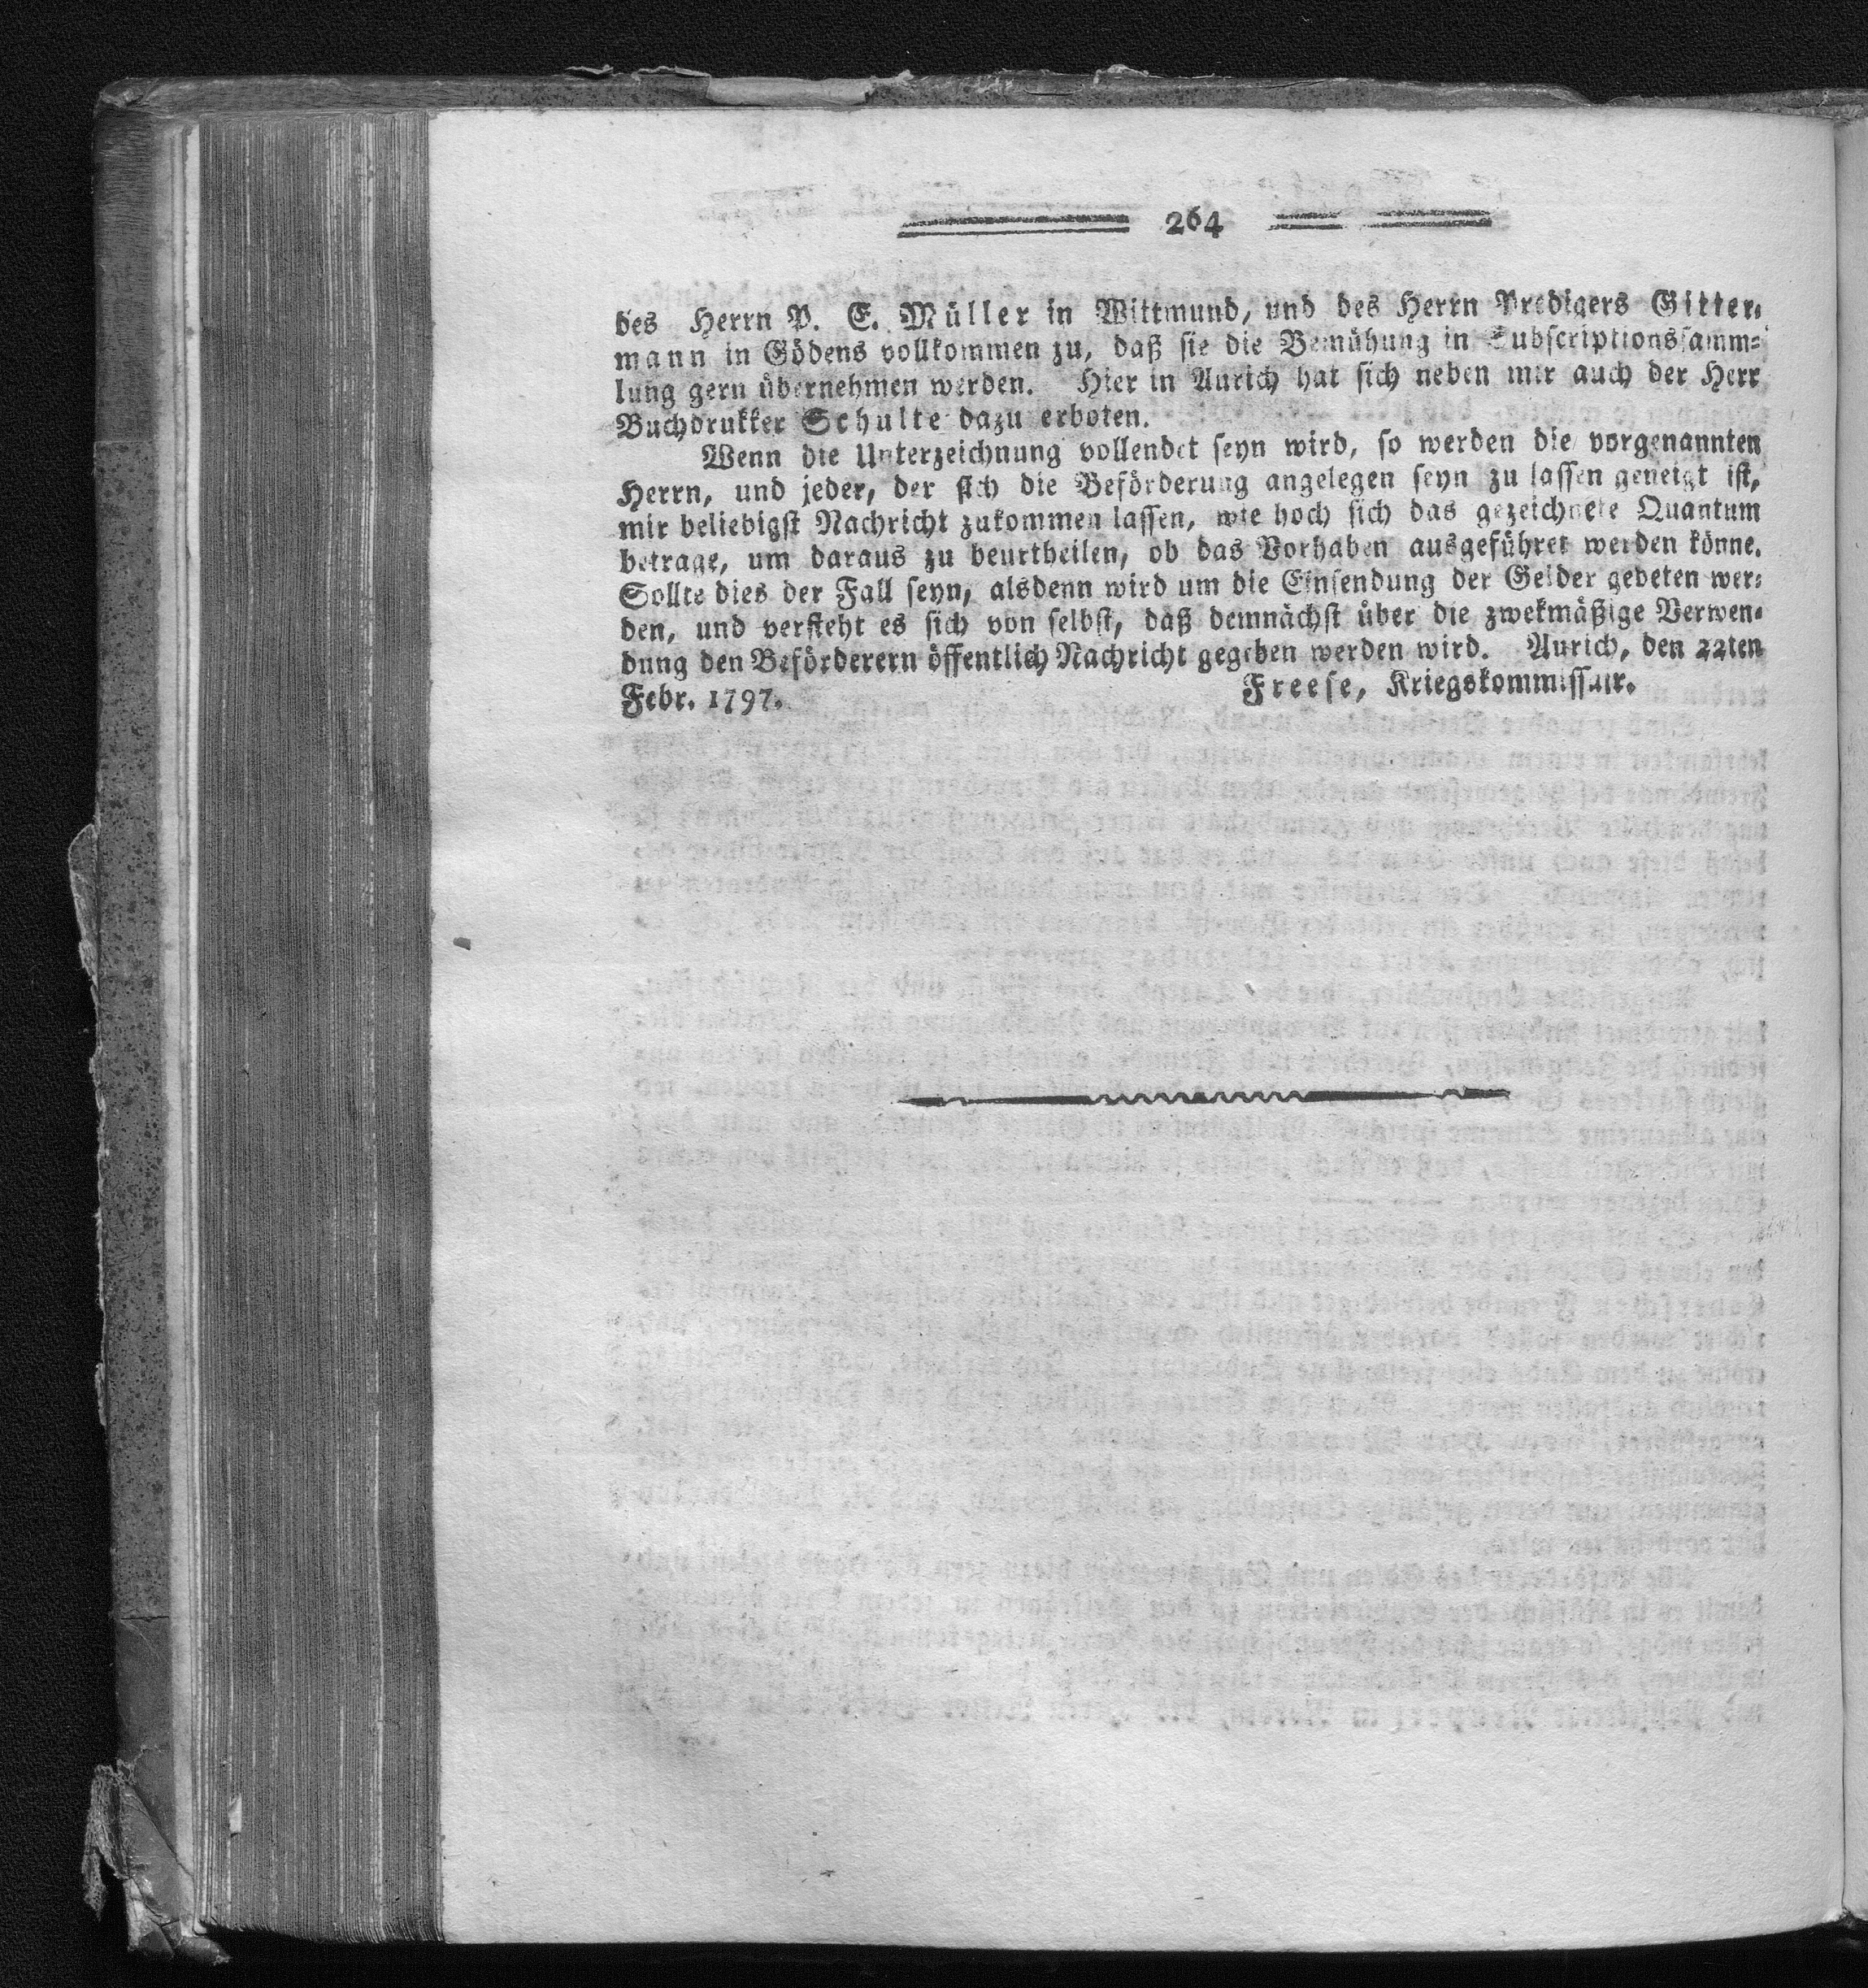 264
des Herrn P. E. Müller in Wittmund, und des Herrn Predigers Gitter-
mann in Gödens vollkommen zu, daß sie die Bemühung in Subscriptionssamm-
lung gern übernehmen werden. Hier in Aurich hat sich neben mir auch der Herr
Buchdrukker Schulte dazu erboten.
Wenn die Unterzeichnung vollendet seyn wird, so werden die vorgenannten
Herrn, und jeder, der sich die Beförderung angelegen seyn zu lassen geneigt ist,
mir beliebigst Nachricht zukommen lassen, wie hoch sich das gezeichnete Quantum
betrage, um daraus zu beurtheilen, ob das Vorhaben ausgeführet werden könne.
Sollte dies der Fall seyn, alsdenn wird um die Einsendung der Gelder gebeten wer-
den, und versteht es sich von selbst, daß demnächst über die zwekmäßige Verwen-
dung den Beförderern öffentlich Nachricht gegeben werden wird. Aurich, den 22ten
Febr. 1797. Freese, Kriegskommissair.